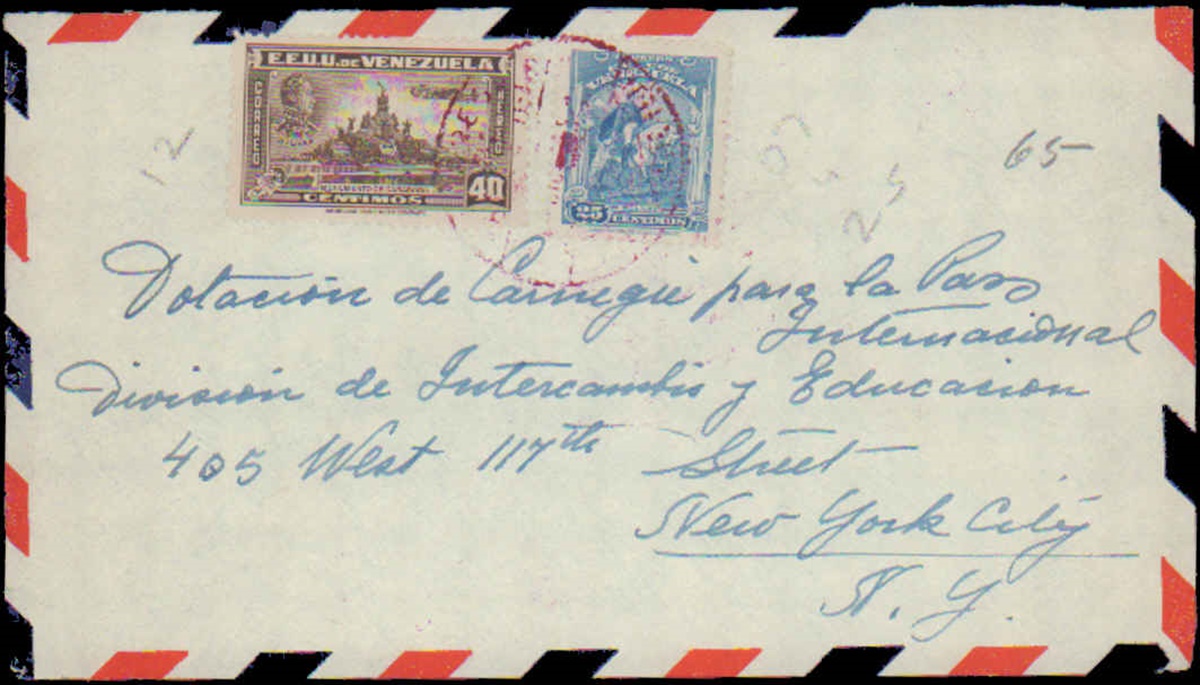 E.E.U.U. DE VENEZUELA
CORREO
AEREO
MONUMENTO DE CARABOBO
40
CENTIMOS
VENEZUELA
25
CENTIMOS
12
65
25
Dotación de Carnegie para la Pas
Internacional
División de Intercambio y Educacion
405 West 117th Street
New York City
N. Y.